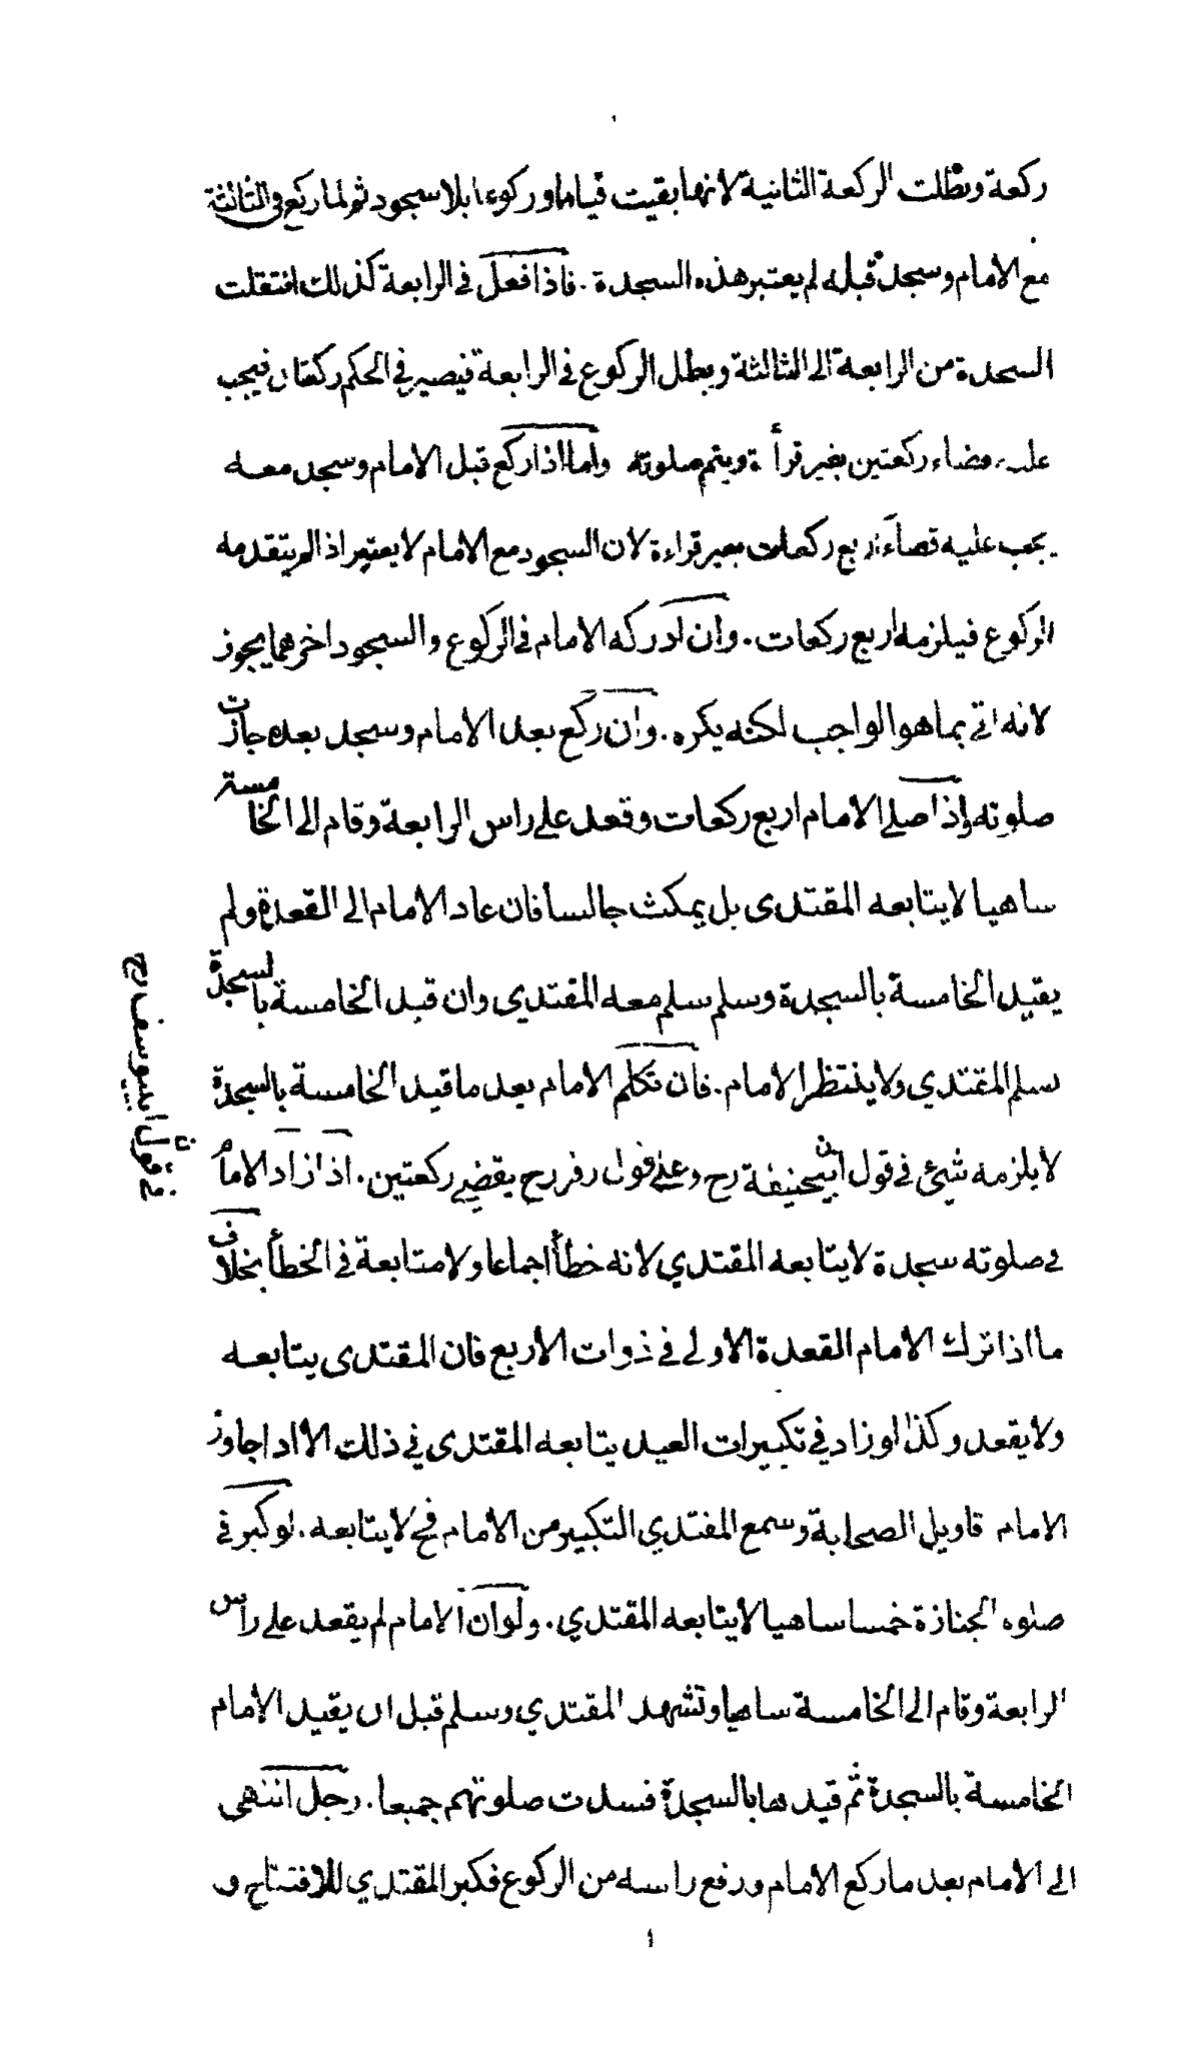 ركعة وبطلت الركعة الثانية لانها بقيت قياما وركوعا بلا سجود ثم لما ركع في الثالثة
مع الامام وسجد قبله لم يعتبر هذه السجدة . فاذا فعل في الرابعة كذلك انتقلت
السجدة من الرابعة الى الثالثة وبطل الركوع في الرابعة فيصير في الحكم ركعتان فيجب
عليه قضاء ركعتين بغير قرأة ويتم صلوته واما اذا ركع قبل الامام وسجد معه
يجب عليه قضاء اربع ركعات بغير قراءة لان السجود مع الامام لا يعتبر اذا لم يتقدمه
الركوع فيلزمه اربع ركعات . وان ادركه الامام في الركوع والسجود اخرهما يجوز
لانه اتى بما هو الواجب لكنه يكره . وان ركع بعد الامام وسجد بعده جازت
صلوته واذا صلى الامام اربع ركعات وقعد على راس الرابعة وقام الى الخامسة
ساهيا لا يتابعه المقتدى بل يمكث جالسا فان عاد الامام الى القعدة ولم
يقيد الخامسة بالسجدة وسلم سلم معه المقتدي وان قيد الخامسة بالسجدة
سلم المقتدي ولا ينتظر الامام . فان تكلم الامام بعد ما قيد الخامسة بالسجدة
لا يلزمه شيئ في قول ابيحنيفة رح وعلى قول زفر رح يقضي ركعتين . اذا زاد الامام
في صلوته سجدة لا يتابعه المقتدي لانه خطأ اجماعا ولا متابعة في الخطأ بخلاف
ما اذا ترك الامام القعدة الاولى في ذوات الاربع فان المقتدى يتابعه
ولا يقعد وكذا لو زاد في تكبيرات العيد يتابعه المقتدى في ذلك الا اذا جاوز
الامام قاويل الصحابة وسمع المقتدي التكبير من الامام فح لا يتابعه . لو كبر في
صلوه الجنازة خمسا ساهيا لا يتابعه المقتدي . ولو ان الامام لم يقعد على راس
الرابعة وقام الى الخامسة ساهيا وتشهد المقتدي وسلم قبل ان يقيد الامام
الخامسة بالسجدة ثم قيدها بالسجدة فسدت صلوتهم جميعا . رجل انتهى
الى الامام بعد ما ركع الامام ورفع راسه من الركوع فكبر المقتدي للافتتاح و
في قول ابييوسف رح